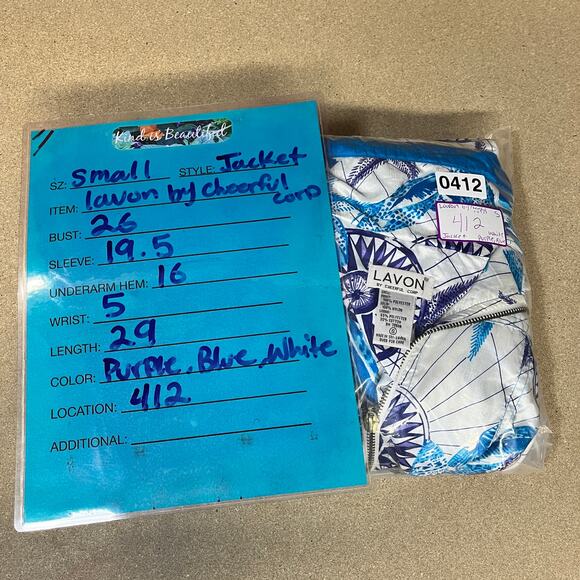 Kind is Beautiful
SZ: Small STYLE: Jacket
ITEM: Lavon by cheerful corp
BUST: 26
SLEEVE: 19.5
UNDERARM HEM: 16
WRIST: 5
LENGTH: 29
COLOR: Purple, Blue, White
LOCATION: 412
ADDITIONAL:
0412
412
Jacket
LAVON
BY CHEERFUL CORP